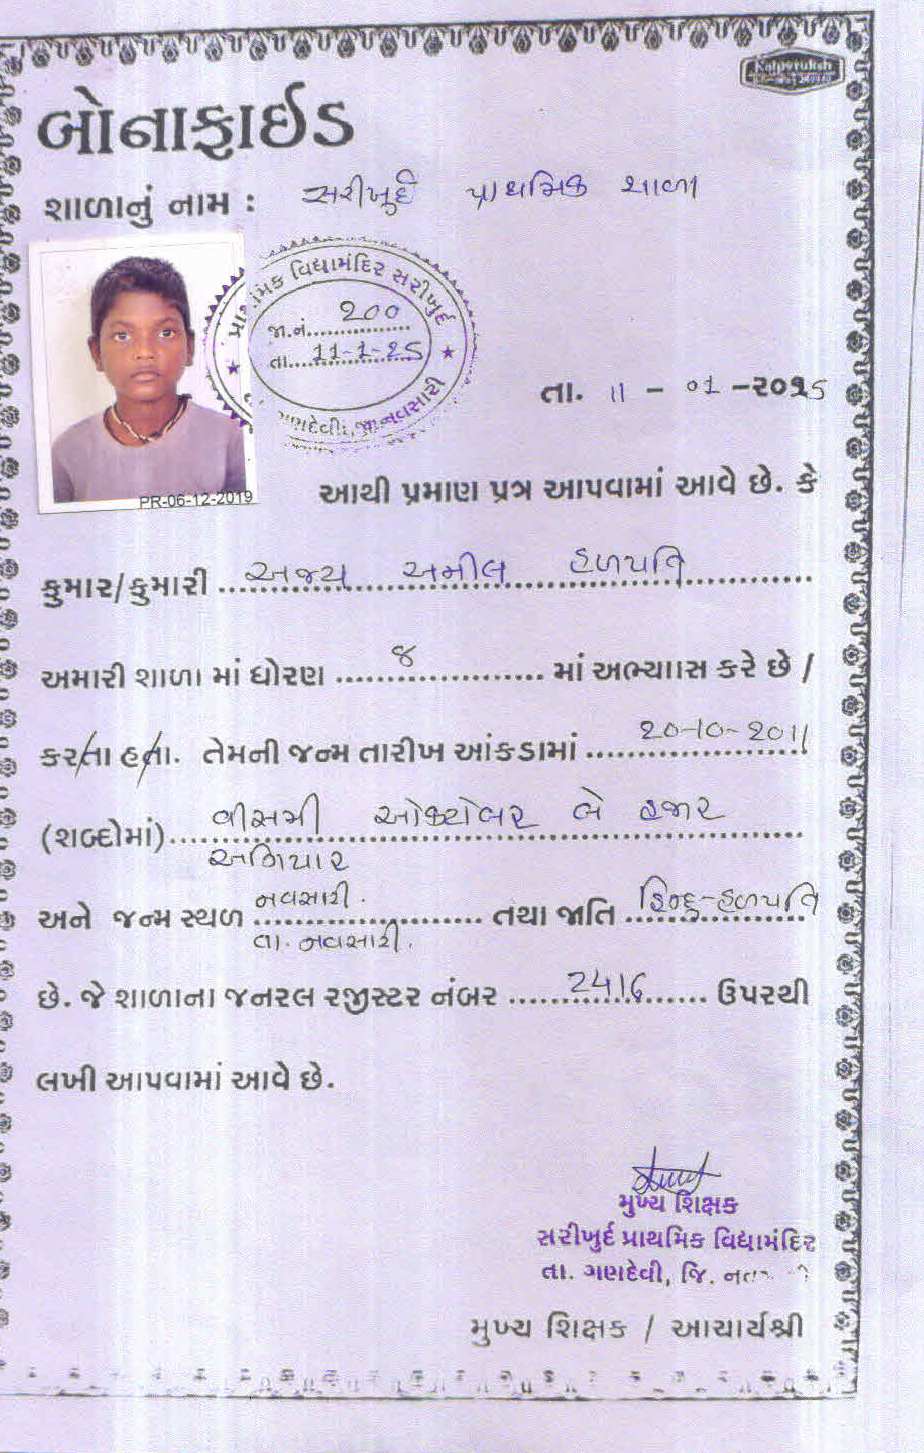 Kalpvruksh
બોનાફાઈડ
શાળાનું નામ : સરીખુર્દ પ્રાથમિક શાળા
પ્રાથમિક વિદ્યામંદિર સરીખુર્દ
જા.નં. 200
તા. 11-1-25
ગણદેવી, જી.નવસારી
તા. 11 - 01 -૨૦૨5
PR-06-12-2019
આથી પ્રમાણ પ્રત્ર આપવામાં આવે છે. કે
કુમાર/કુમારી અજય અનીલ હળપતિ
અમારી શાળા માં ધોરણ ૪ માં અભ્યાસ કરે છે /
કરતા હતા. તેમની જન્મ તારીખ આંકડામાં 20-10-2011
(શબ્દોમાં) વીસમી ઓક્ટોબર બે હજાર
અગિયાર
અને જન્મ સ્થળ નવસારી. તથા જાતિ હિન્દુ-હળપતિ
તા. નવસારી.
છે. જે શાળાના જનરલ રજીસ્ટર નંબર 2416 ઉપરથી
લખી આપવામાં આવે છે.
મુખ્ય શિક્ષક
સરીખુર્દ પ્રાથમિક વિદ્યામંદિર
તા. ગણદેવી, જિ.
મુખ્ય શિક્ષક / આચાર્યશ્રી